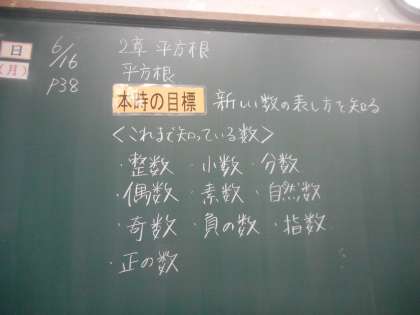 日 6/16 2章 平方根
(月) 平方根
P38 本時の目標 新しい数の表し方を知る
<これまで知っている数>
・整数 ・小数 ・分数
・偶数 ・素数 ・自然数
・奇数 ・負の数 ・指数
・正の数